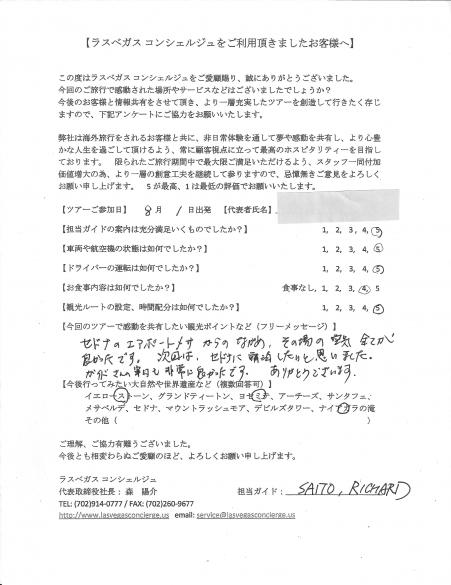 【ラスベガス コンシェルジュをご利用頂きましたお客様へ】
この度はラスベガス コンシェルジュをご愛顧賜り、誠にありがとうございました。
今回のご旅行で感動された場所やサービスなどはございましたでしょうか?
今後のお客様と情報共有をさせて頂き、より一層充実したツアーを創造して行きたく存じ
ますので、下記アンケートにご協力をお願いいたします。
弊社は海外旅行をされるお客様と共に、非日常体験を通して夢や感動を共有し、より心豊
かな人生を過ごして頂けるよう、常に顧客視点に立って最高のホスピタリティーを目指し
ております。 限られたご旅行期間中で最大限ご満足いただけるよう、スタッフ一同付加
価値増大の為、より一層の創意工夫を継続して参りますので、忌憚無きご意見をよろしく
お願い申し上げます。 5が最高、1は最低の評価でお願いいたします。
【ツアーご参加日】 8月 1日出発 【代表者氏名】
【担当ガイドの案内は充分満足いくものでしたか?】 1, 2, 3, 4, 5
【車両や航空機の状態は如何でしたか?】 1, 2, 3, 4, 5
【ドライバーの運転は如何でしたか?】 1, 2, 3, 4, 5
【お食事内容は如何でしたか?】 食事なし, 1, 2, 3, 4, 5
【観光ルートの設定、時間配分は如何でしたか?】 1, 2, 3, 4, 5
【今回のツアーで感動を共有したい観光ポイントなど(フリーメッセージ)】
セドナのエアポートメサからのながめ、その場の空気 全てが
良かったです。 次回は、セドナに宿泊したいと思いました。
ガイドさんの案内も非常に良かったです。 ありがとうございます。
【今後行ってみたい大自然や世界遺産など(複数回答可)】
イエローストーン、グランドティートン、ヨセミテ、アーチーズ、サンタフェ、
メサベルデ、セドナ、マウントラッシュモア、デビルズタワー、ナイアガラの滝
その他( )
ご理解、ご協力有難うございました。
今後とも相変わらぬご愛顧のほど、よろしくお願い申し上げます。
ラスベガス コンシェルジュ
代表取締役社長: 森 陽介 担当ガイド: SAITO, RICHARD
TEL: (702)914-0777 / FAX: (702)260-9677
http://www.lasvegasconcierge.us email: service@lasvegasconcierge.us